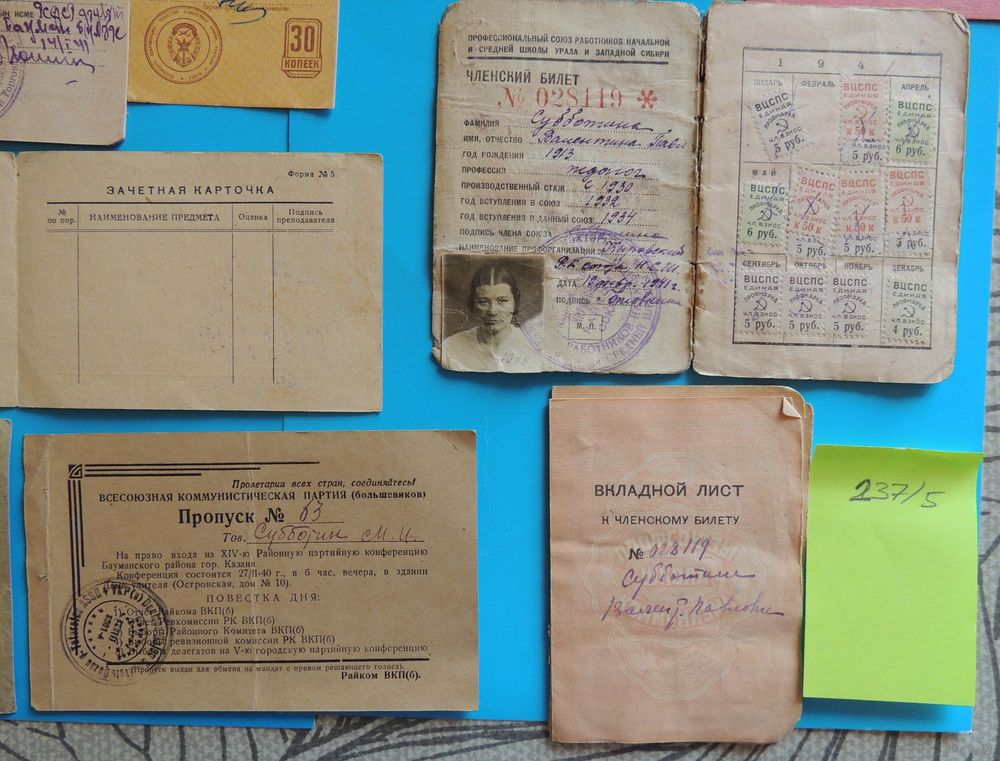 30
КОПЕЕК
ПРОФЕССИОНАЛЬНЫЙ СОЮЗ РАБОТНИКОВ НАЧАЛЬНОЙ
И СРЕДНЕЙ ШКОЛЫ УРАЛА И ЗАПАДНОЙ СИБИРИ
ЧЛЕНСКИЙ БИЛЕТ
№ 028119
ФАМИЛИЯ Субботина
ИМЯ, ОТЧЕСТВО Валентина Павл
ГОД РОЖДЕНИЯ 1913
ПРОФЕССИЯ педагог
ПРОИЗВОДСТВЕННЫЙ СТАЖ с 1930
ГОД ВСТУПЛЕНИЯ В СОЮЗ 1932
ГОД ВСТУПЛЕНИЯ В ДАННЫЙ СОЮЗ 1934
ПОДПИСЬ ЧЛЕНА СОЮЗА
НАИМЕНОВАНИЕ ПРОФОРГАНИЗАЦИИ
ДАТА 1941 г
ПОДПИСЬ
М. П.
194
ЯНВАРЬ ФЕВРАЛЬ АПРЕЛЬ
ВЦСПС ЕДИНАЯ ПРОФМАРКА ЧЛ. ВЗНОС 5 руб.
ВЦСПС ЕДИНАЯ К 50 к ЧЛ. ВЗНОС 5 руб.
ВЦСПС ЕДИНАЯ ПРОФМАРКА ЧЛ. ВЗНОС 6 руб.
МАЙ
ВЦСПС ЕДИНАЯ ПРОФМАРКА ЧЛ. ВЗНОС 6 руб.
ВЦСПС ЕДИНАЯ К 50 к ЧЛ. ВЗНОС 5 руб.
ВЦСПС ЕДИНАЯ К 50 к ЧЛ. ВЗНОС 5 руб.
ВЦСПС ЕДИНАЯ К 50 к ЧЛ. ВЗНОС 5 руб.
СЕНТЯБРЬ ОКТЯБРЬ НОЯБРЬ ДЕКАБРЬ
ВЦСПС ЕДИНАЯ ПРОФМАРКА ЧЛ. ВЗНОС 5 руб.
ВЦСПС ЕДИНАЯ ПРОФМАРКА ЧЛ. ВЗНОС 5 руб.
ВЦСПС ЕДИНАЯ ПРОФМАРКА ЧЛ. ВЗНОС 5 руб.
ВЦСПС ЕДИНАЯ ПРОФМАРКА ЧЛ. ВЗНОС 4 руб.
Форма № 5
ЗАЧЕТНАЯ КАРТОЧКА
№ по пор. НАИМЕНОВАНИЕ ПРЕДМЕТА Оценка Подпись преподавателя
Пролетарии всех стран, соединяйтесь!
ВСЕСОЮЗНАЯ КОММУНИСТИЧЕСКАЯ ПАРТИЯ (большевиков)
Пропуск № 63
Тов. Субботин М. И.
На право входа на XIV-ю Районную партийную конференцию
Бауманского района гор. Казани.
Конференция состоится 27/II-40 г., в 6 час. вечера, в здании
Дома учителя (Островская, дом № 10).
ПОВЕСТКА ДНЯ:
Отчет Райкома ВКП(б)
ревкомиссии РК ВКП(б)
Районного Комитета ВКП(б)
ревизионной комиссии РК ВКП(б)
делегатов на V-ю городскую партийную конференцию
(Пропуск выдан для обмена на мандат с правом решающего голоса).
Райком ВКП(б).
ВКЛАДНОЙ ЛИСТ
К ЧЛЕНСКОМУ БИЛЕТУ
№ 028119
Субботина
Павловн
237/5